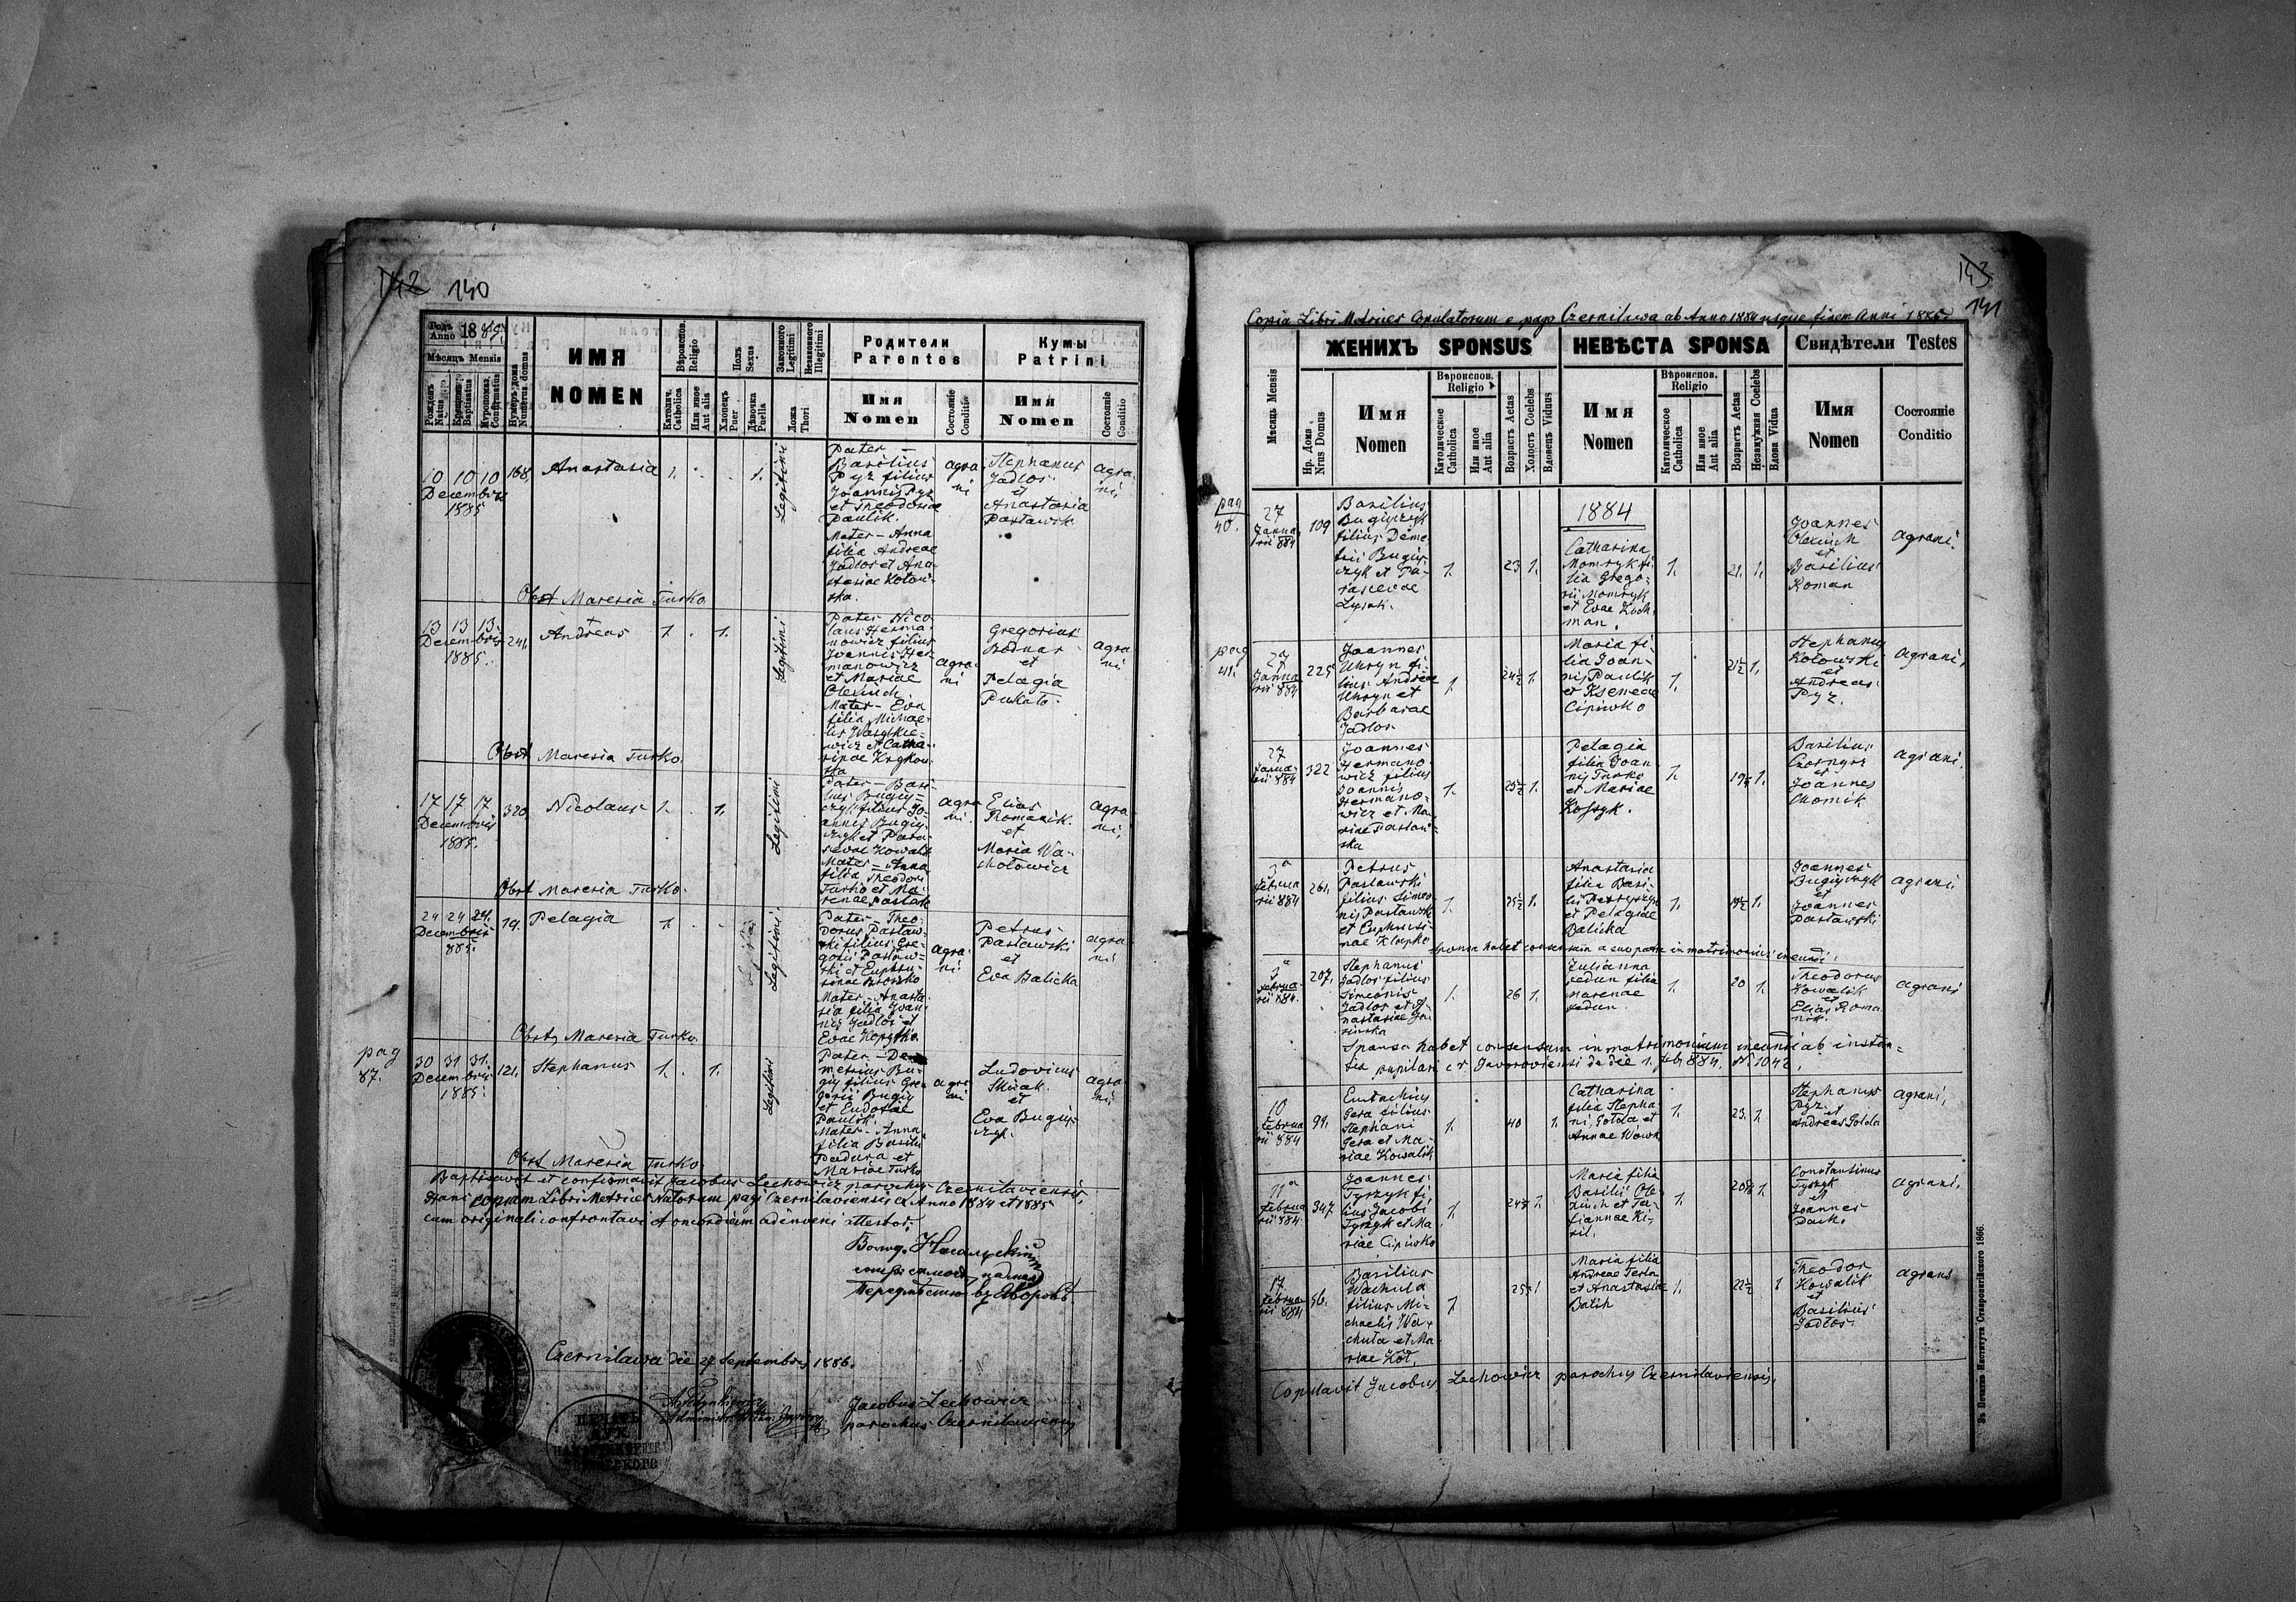 142 140
Родъ Anno 1885.
Мѣсяць Mensis
Рожденъ Natus
Крещенъ Baptisatus
Мѵропомаз. Confirmatus
Нумеръ дома Numerus domus
ИМЯ
NOMEN
Вѣроиспов. Religio
Католич. Catholica
Или иное Aut alia
Полъ Sexus
Хлопецъ Puer
Дѣвочка Puella
Законного Legitimi
Незаконного Illegitimi
Ложа Thori
Родители
Parentes
Имя
Nomen
Состояніе
Conditio
Кумы
Patrini
Имя
Nomen
Состояніе
Conditio
10 10 10
Decembris
1885
168,
Anastasia
1.
1.
Legitimi
Pater –
Basilius
Pyz filius
Joannis Pyz
et Theodosiae
Paulik.
Mater – Anna
filia Andreae
Jadlos et Ana-
stasiae Kotow-
ska.
agra
ni
Stephanus
Jadlos
et
Anastasia
Pastawsk.
agra-
ni,
Obst Maresia Turko
13 13 13.
Decembris
1885.
241.
Andreas
1.
1.
Legitimi
Pater Nico
laus Herma
nowicz filius
Joannis Her
manowicz
et Mariae
Olexiuch.
Mater – Eva
filia Michae-
lis Wasylkie-
wicz et Catha-
rinae Krykow-
ska
agra-
ni
Gregorius
Bodnar
et
Pelagia
Pukato.
agra
ni
Obst Maresia Turko.
17 17 17
Decembris
1885.
320
Nicolaus
1.
1.
Legitimi
Pater – Basi-
lius Bugiy=
czyk filius Jo-
annis Bugiy-
czyk et Para-
sevae Kowalik
Mater – Anna
filia Theodori
Turko et Ma-
renae Pastask
agra
ni.
Elias
Romanik.
et
Maria Wa-
chotowicz
agra
ni,
Obst Maresia Turko.
24 24 24.
Decembris
885.
19.
Pelagia
1.
Legitimi
Pater – Theo-
dorus Pastaw-
ski filius Gre-
gorii Pastaw=
ski et Euphro-
sinae Brosko
Mater – Anasta
sia filia Joan-
nis Jadlos et
Evae Kopytko.
agra-
ni.
Petrus
Pastawski
et
Eva Balicka
agra-
ni
Obst, Maresia Turko.
pag
87.
30 31 31.
Decembris
1885.
121.
Stephanus
1.
1.
Legitimi
Pater – De
metrius Bu-
giy filius Gre
gorii Bugiy
et Eudosae
Paulik.
Mater – Anna
filia Basilii
Padura et
Mariae Turko
agra
ni
Ludovicus
Skuak.
et
Eva Bugiy-
czyk.
agra-
ni,
Obst Maresia Turko.
Baptisavit et confirmavit Jacobus Lechowicz parochus Czernilaviensis
copiam Libri Metrices Natorum pagi Czernilaviensis de Anno 1884 et 1885
cum originali confrontavi et concordiam adinveni attestor.
Czernilawa die 27 Septembris 1886.
Jacobus Lechowicz
parochus Czernilaviensis
ПЕЧАТЬ
143
141
Copia Libri Metrices Copulatorum e pago Czernilawa ab Anno 1884 usque finem Anni 1885.
ЖЕНИХЪ SPONSUS
НЕВѢСТА SPONSA
Свидѣтели Testes
Мѣсяць Mensis
Нр. Дома Nrus Domus
Имя
Nomen
Вѣроиспов. Religio
Католическое Catholica
Или иное Aut alia
Возрастъ Aetas
Холостъ Coelebs
Вдовецъ Viduus
Имя
Nomen
Вѣроиспов. Religio
Католическое Catholica
Или иное Aut alia
Возрастъ Aetas
Незамужна Coelebs
Вдова Vidua
Имя
Nomen
Состояніе
Conditio
pag
40.
27
Janua
rii 884
109
Basilius
Bugiyczyk
filius Deme
trii Bugiy-
czyk et Pa-
rascevae
Lysak.
1.
23 1.
1884
Catharina
Momryk fi-
lia Grego-
rii Momryk
et Evae Koch-
man.
1.
21. 1.
Joannes
Olexiuch
et
Basilius
Roman
agrani.
pag
41.
27
Janua
rii 884
225
Joannes
Uhryn fi-
lius Andreae
Uhryn et
Barbarae
Jadlos
1.
24½ 1.
Maria fi-
lia Joan-
nis Paulik
et Kseneae
Cipiwko
1.
21½ 1.
Stephanus
Kotowski
et
Andreas
Pyz.
agrani,
27
Janua-
rii 884
322
Joannes
Hermano-
wicz filius
Joannis
Hermano-
wicz et Ma
riae Pastaw=
ska
1.
25½ 1.
Pelagia
filia Joan-
nis Turko
et Mariae
1.
1.
Basilius
et
Joannes
Chomik
agrani,
3a
Februa
rii 884
261.
Petrus
Pastawski
filius Simeo
nis Pastawsk
et Euphrosi-
nae Klapko
1.
25½ 1.
Anastasia
filia Basi-
lii Petryszyn
et Pelagiae
Balicka
1.
19½ 1.
Joannes
Bugiyczyk
et
Joannes
Pastawski
agrani,
Sponsa habet consensum a suo patre in matrimonium ineundi.
3a
Februa
rii 884.
207.
Stephanus
Jadlos filius
Simeonis
Jadlos et A-
nastasiae
1.
26 1.
Julianna
Fedun filia
Marenae
Fedun.
1.
20 1.
Theodorus
Kowalik
et
Elias Roma
nik.
agrani
Sponsa habet consensum in matrimonium ineundi ab instan=
tia pupilari cr Javoroviensi de die 1. feb 884. N 1042.
10
Februa
rii 884
91.
Eustachius
Gera filius
Stephani
Gera et Ma-
riae Kowalik
1.
40 1.
Catharina
filia Stepha
ni, Golda et
Annae Wowk
1.
23. 1.
Stephanus
Pyz
et
Andreas Golda
agrani,
11a
Februa
rii 884.
347
Joannes
Tyszyk fi
lius Jacobi
Tyszyk et Ma-
riae Cipiwko
1.
1.
Maria filia
Basilii Ole-
xiuch et Ta-
tiannae Ki-
ril.
1.
1.
Constantinus
Tyszyk
et
Joannes
Dack.
agrani.
17
Februa-
rii 884
56.
Basilius
Wachula
filius Mi-
chaelis Wa-
chula et Ma-
riae Kot.
1.
1
Maria filia
Andreae Tesla
et Anastasiae
Batih
1.
22½ 1
Theodor
Kowalik
et
Basilius
Jadlos.
agrani
Copulavit Jacobus Lechowicz parochus Czernilaviensis.
Въ Печатнѣ Института Ставропигійского 1866.